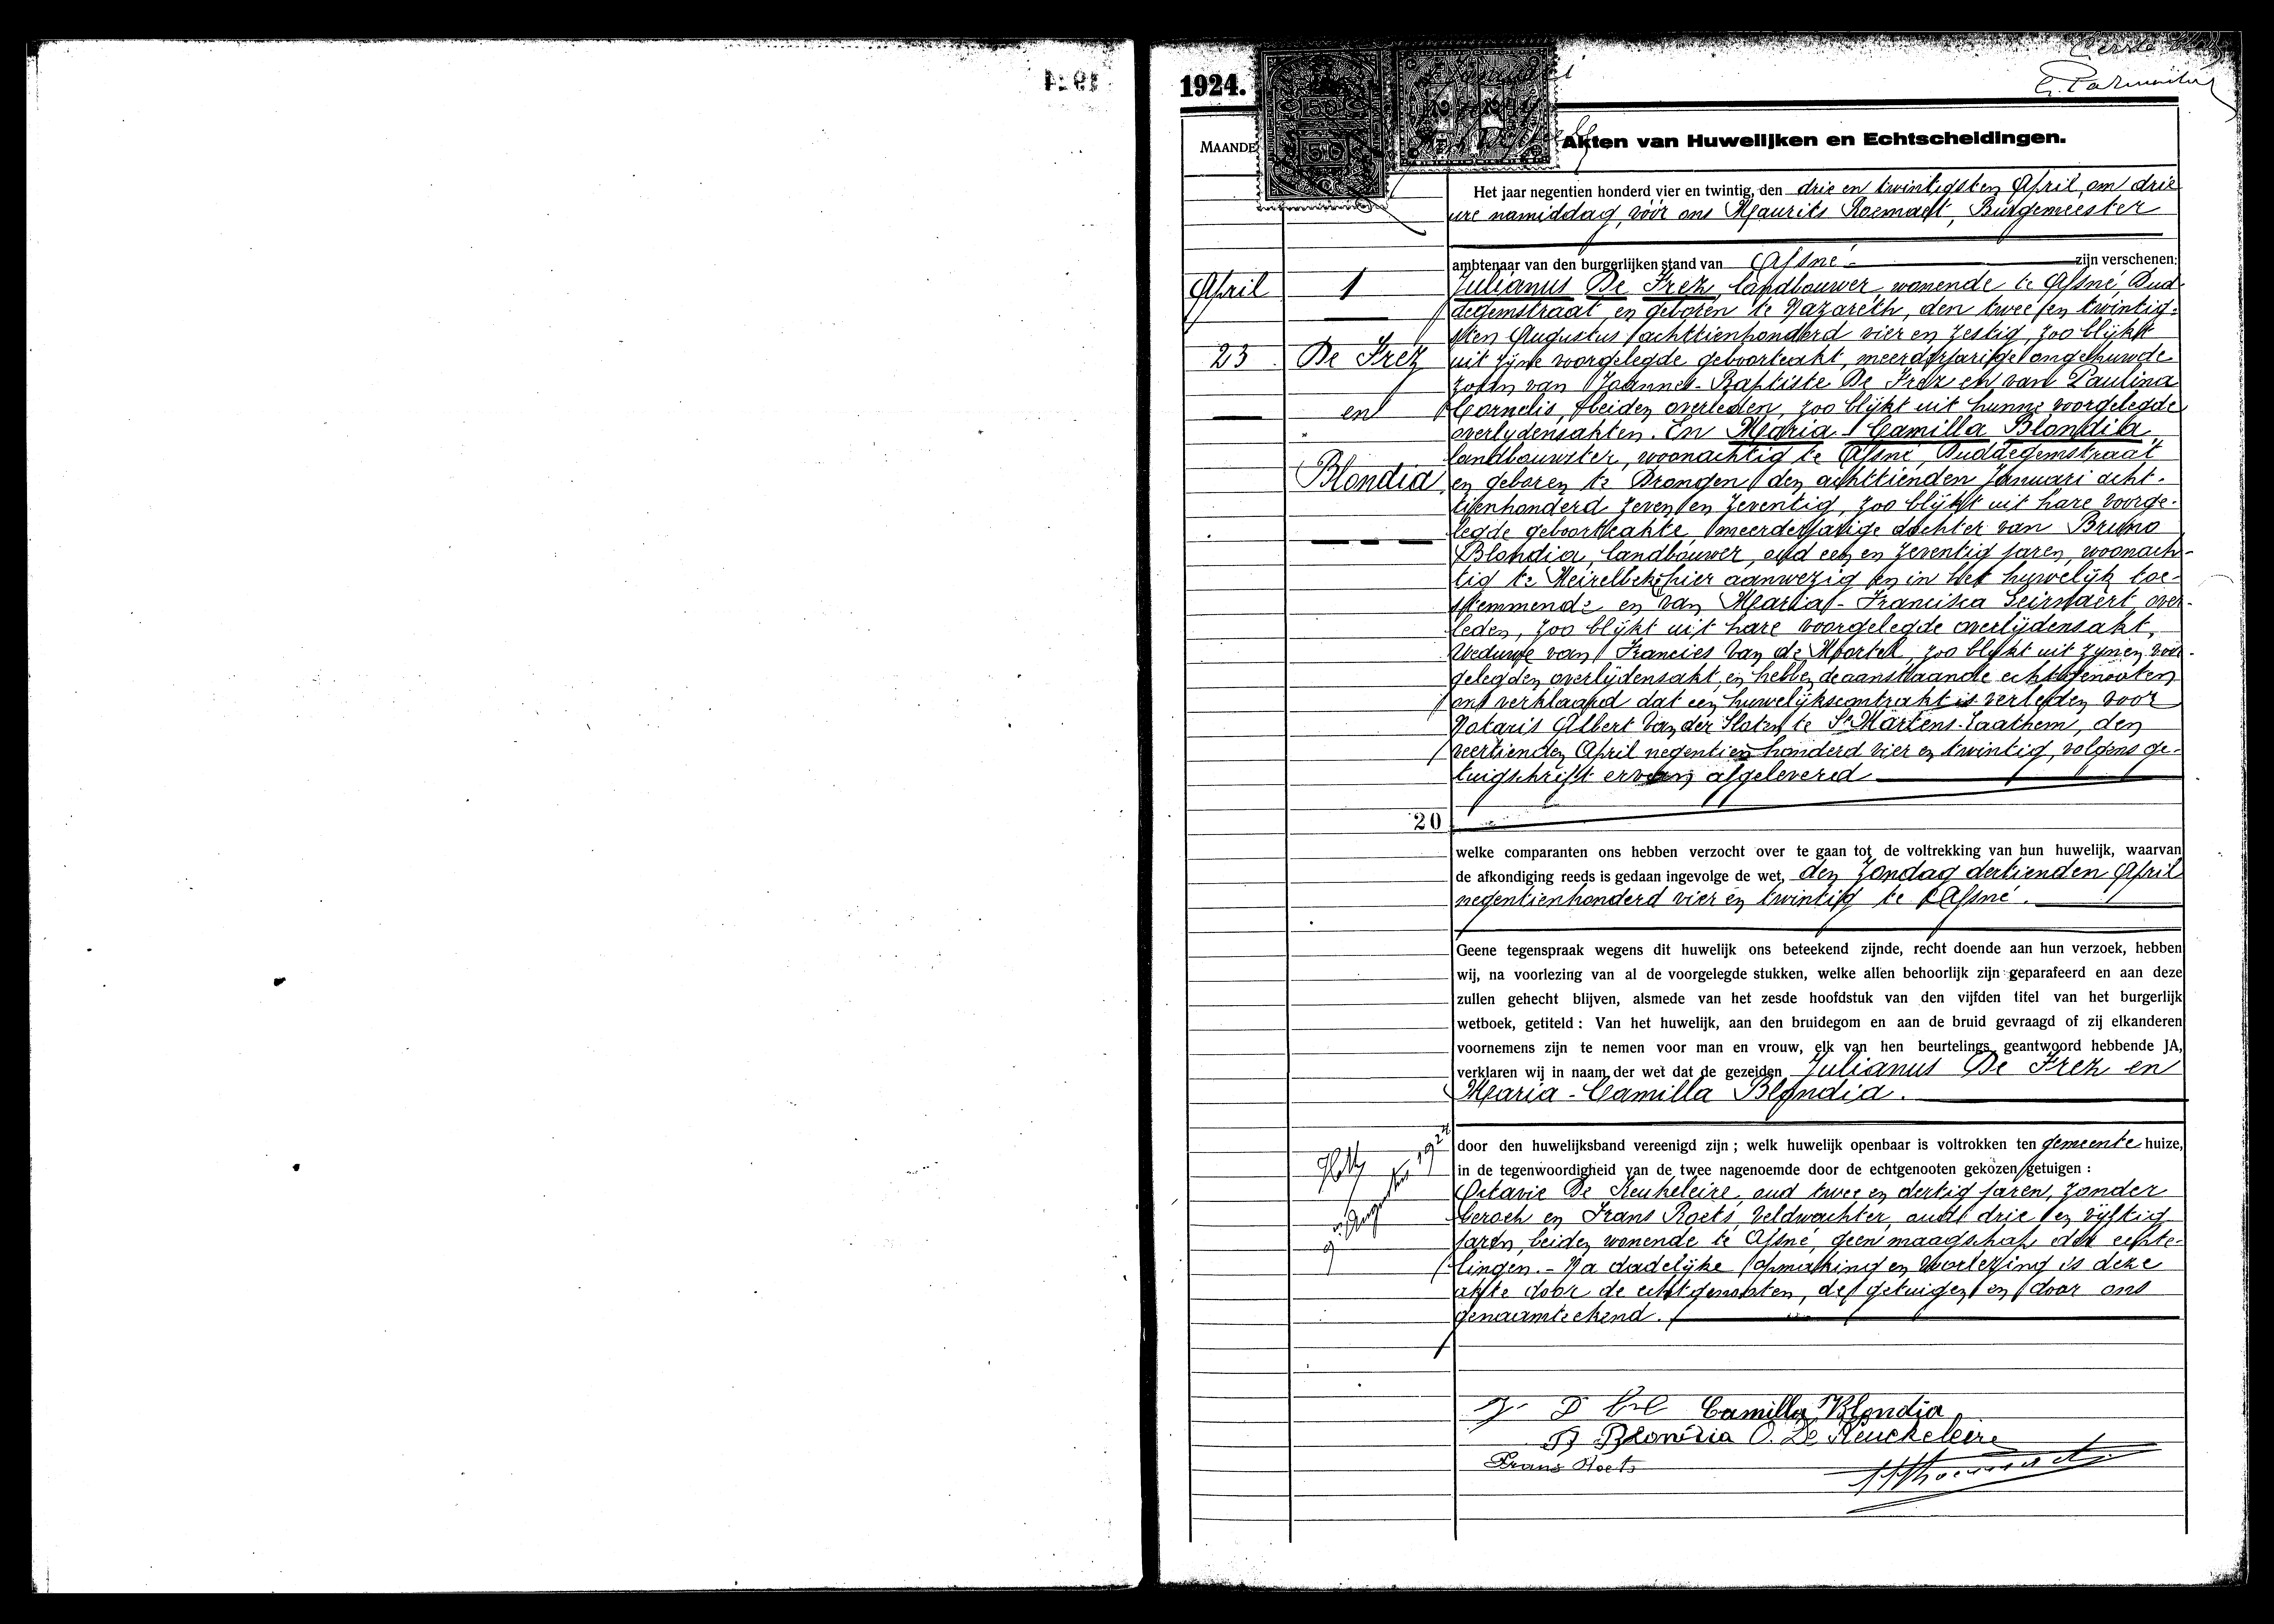 Eerste blad
1924.
MAANDE
Akten van Huwelijken en Echtscheidingen.
Het jaar negentien honderd vier en twintig, den drie en twintigsten April, om drie
ure namiddag, vóór ons Maurits Roemaet, Burgemeester
ambtenaar van den burgerlijken stand van Afsné zijn verschenen:
April
1
Julianus De Frez, landbouwer, wonende te Afsné, Oud-
degemstraat, en geboren te Nazareth, den twee en twintig-
sten Augustus achttienhonderd vier en zestig, zoo blijkt
23
De Frez
uit zijne voorgelegde geboorteakt, meerderjarige ongehuwde
zoon van Joannes-Baptiste De Frez en van Paulina
en
Cornelis, beiden overleden, zoo blijkt uit hunne voorgelegde
overlydensakten. En Maria-Camilla Blondia,
landbouwster, woonachtig te Afsné, Ouddegemstraat
Blondia
en geboren te Drongen den achttienden Januari acht-
tienhonderd zeven en zeventig, zoo blijkt uit hare voorge-
legde geboorteakte, meerderjarige dochter van Bruno
Blondia, landbouwer, oud een en zeventig jaren, woonach-
tig te Meirelbeke, hier aanwezig en in het huwelijk toe-
stemmende en van Maria-Francisca Leirnaert, over-
leden, zoo blijkt uit hare voorgelegde overlijdensakt,
Weduwe van Francies Van de Moortel, zoo blykt uit zynen voor-
gelegden overlijdensakt, en hebben de aanstaande echtgenooten
ons verklaard dat een huwelijkscontrakt is verleden voor
Notaris Albert Van der Sloten te St Martens-Laathem, den
veertienden April negentien honderd vier en twintig, volgens ge-
tuigschrift ervan afgeleverd
20
welke comparanten ons hebben verzocht over te gaan tot de voltrekking van hun huwelijk, waarvan
de afkondiging reeds is gedaan ingevolge de wet, den Zondag dertienden April
negentienhonderd vier en twintig te Afsné.
Geene tegenspraak wegens dit huwelijk ons beteekend zijnde, recht doende aan hun verzoek, hebben
wij, na voorlezing van al de voorgelegde stukken, welke allen behoorlijk zijn geparafeerd en aan deze
zullen gehecht blijven, alsmede van het zesde hoofdstuk van den vijfden titel van het burgerlijk
wetboek, getiteld : Van het huwelijk, aan den bruidegom en aan de bruid gevraagd of zij elkanderen
voornemens zijn te nemen voor man en vrouw, elk van hen beurtelings geantwoord hebbende JA,
verklaren wij in naam der wet dat de gezeiden Julianus De Frez en
Maria-Camilla Blondia.
door den huwelijksband vereenigd zijn ; welk huwelijk openbaar is voltrokken ten gemeente huize,
in de tegenwoordigheid van de twee nagenoemde door de echtgenooten gekozen getuigen :
9n Augustus 1924
Octavie De Keukeleire, oud twee en dertig jaren, zonder
beroep en Frans Roets, Veldwachter, oud drie en vijftig
jaren, beiden wonende te Afsné, geen maagschap der echte-
lingen. - Na dadelijke opmaking en voorlezing is deze
akte door de echtgenooten, de getuigen en door ons
genaamteekend.
Camilla Blondia
B Blondia O. De Keuckeleire
Frans Roets